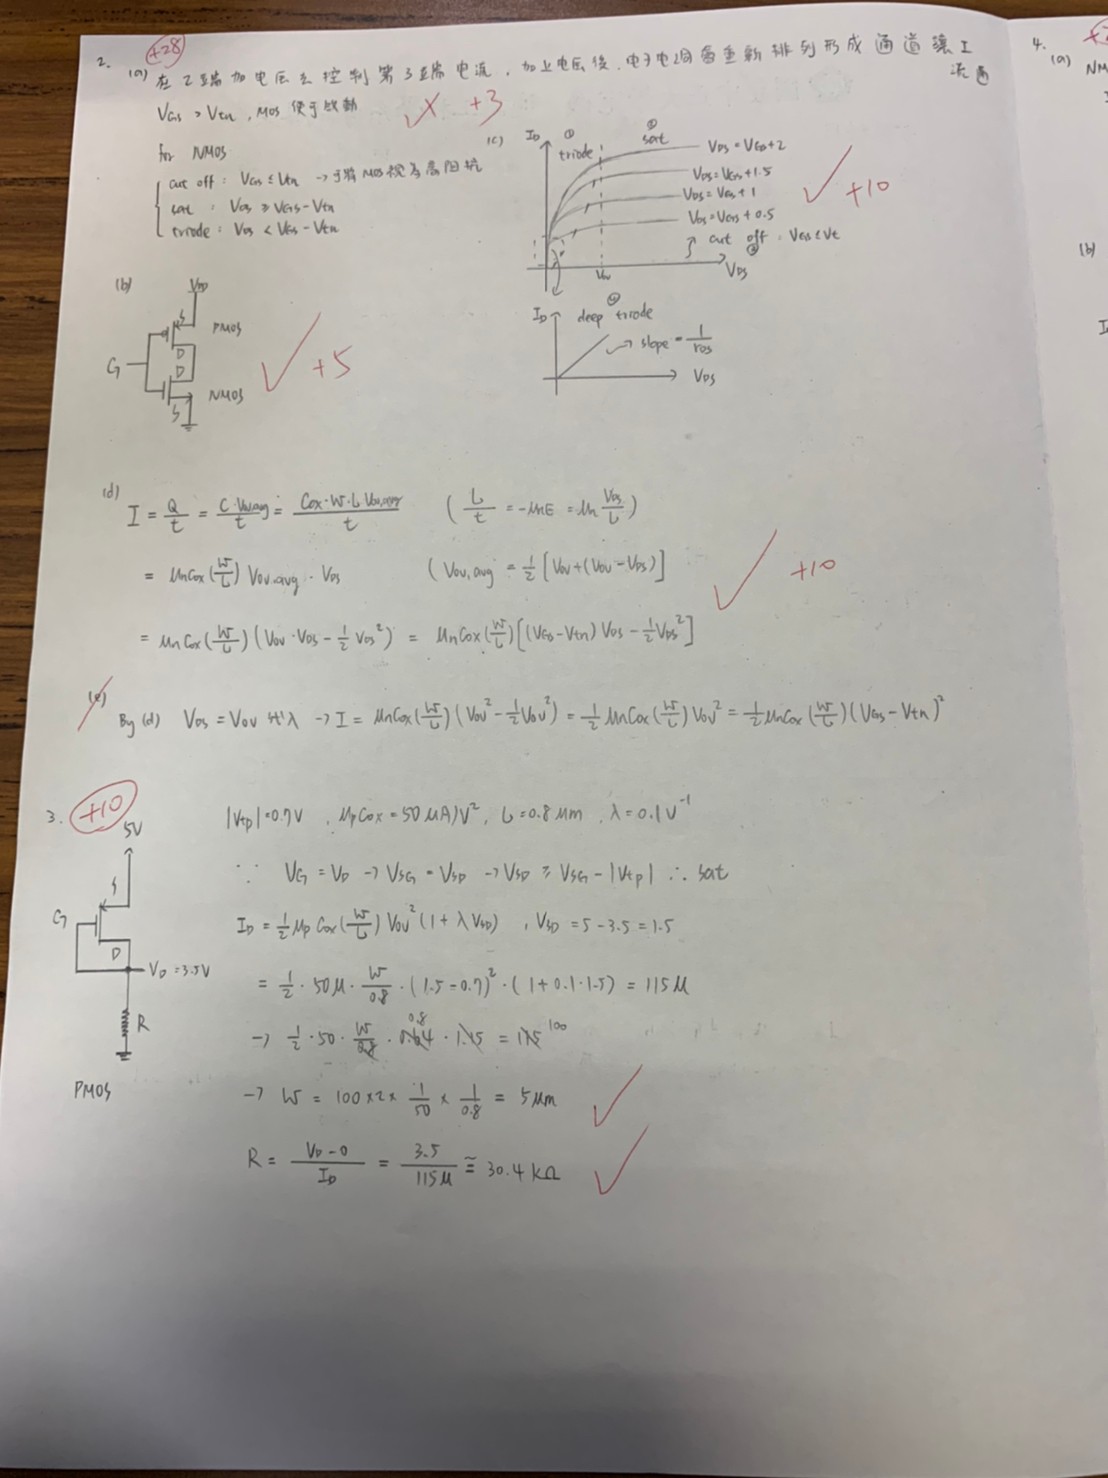 2.
+28
(a) 在 2 端加電压去控制第 3 端電流, 加上電压後, 电子电洞會重新排列形成通道讓 I 流通
VGS > Vtn, MOS 便于啟動
+3
for NMOS
cut off : VGS ≤ Vtn → 可將 MOS 視為高阻抗
sat : VDS ≥ VGS - Vtn
triode : VDS < VGS - Vtn
(c)
ID
① triode
② sat
VDS = VGS+2
VDS = VGS+1.5
VDS = VGS+1
VDS = VGS+0.5
cut off : VGS ≤ Vt
③
Vov
VDS
+10
(b)
VDD
S
PMOS
G
D
D
NMOS
S
+5
ID
④ deep triode
slope = 1/rDS
VDS
(d)
I = Q/t = C·Vov,avg/t = Cox·W·L Vov,avg/t ( L/t = -μnE = μn VDS/L )
= μnCox(W/L) Vov,avg · VDS ( Vov,avg = 1/2 [Vov+(Vov-VDS)]
= μnCox(W/L)(Vov·VDS - 1/2 VDS²) = μnCox(W/L)[(VGS-Vtn)VDS - 1/2 VDS²]
+10
(e)
By (d) VDS = Vov 代入 → I = μnCox(W/L)(Vov² - 1/2 Vov²) = 1/2 μnCox(W/L)Vov² = 1/2 μnCox(W/L)(VGS-Vtn)²
3.
+10
5V
S
G
D
VD = 3.5V
R
PMOS
|Vtp| = 0.7V , μpCox = 50 μA/V² , L = 0.8 μm , λ = 0.1V⁻¹
∵ VG = VD → VSG = VSD → VSD ≥ VSG - |Vtp| ∴ sat
ID = 1/2 μp Cox(W/L) Vov² (1+λVSD) , VSD = 5 - 3.5 = 1.5
= 1/2 · 50μ · W/0.8 · (1.5-0.7)² · (1+0.1·1.5) = 115μ
→ 1/2 · 50 · W/0.8 · 0.64 0.8 · 1.15 = 115 100
→ W = 100×2× 1/50 × 1/0.8 = 5 μm
R = VD-0/ID = 3.5/115μ ≅ 30.4 kΩ
4.
(a)
NM
(b)
I